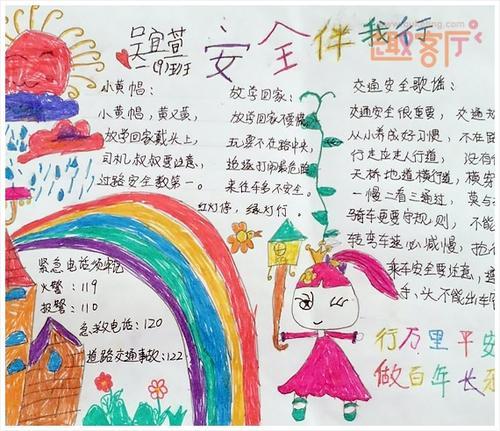 吴宜萱
一(9)班
安全伴我行
趣客厅
小黄帽:
小黄帽,黄又黄,
放学回家戴头上,
司机叔叔要注意,
过路安全数第一。
放学回家:
放学回家不要慢,
五要不在路中央,
追逐打闹最危险,
来往车多不安全。
红灯停,绿灯行。
交通安全歌谣:
交通安全很重要,交通
从小养成好习惯,不在路
行走应走人行道,没有
天桥地道横行道,横穿
一慢二看三通过,莫与
骑车更要守规则,不能
转弯车速必减慢,抢
乘车安全要注意,遵
手、头不能出车
紧急电话须牢记
火警:119
报警:110
急救电话:120
道路交通事故:122
行万里平安
做百年长